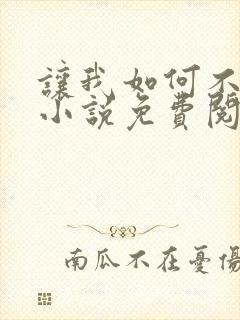 讓我如何不
小說免費閱
南瓜不在憂傷